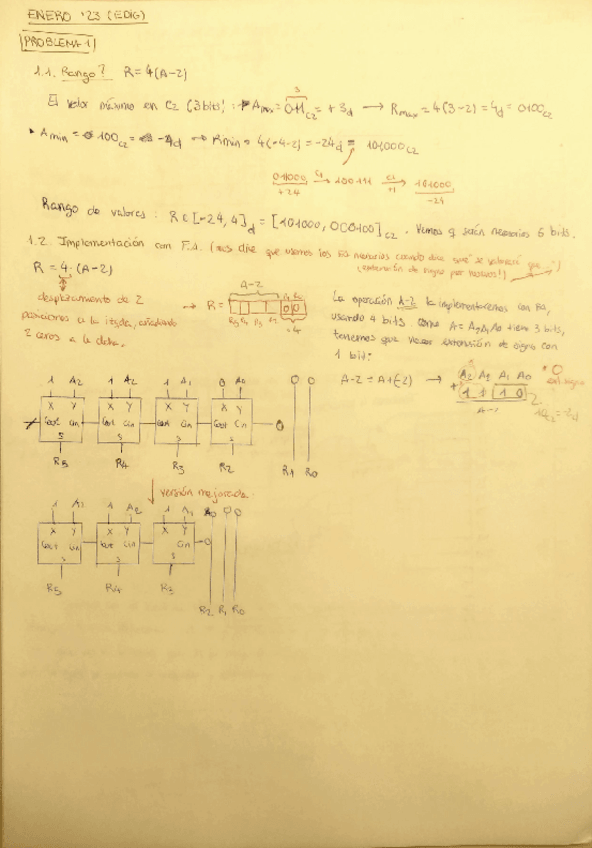 ENERO '23 (EDIG)
PROBLEMA 1
1.1. Rango? R = 4(A-2)
El valor máximo en C2 (3 bits): Amax = 011C2 = +3d → Rmax = 4(3-2) = 4d = 0100C2
3
• Amin = 100C2 = -4d → Rmin = 4(-4-2) = -24d = 101000C2
011000 C1→ 100111 C1+1→ 101000
+24 -24
Rango de valores: R ∈ [-24, 4]d = [101000, 000100]C2. Vemos q serán necesarios 6 bits.
1.2. Implementación con F.A. (nos dice que usemos los FA necesarios cuando dice que "se valorará que..")
(extensión de signo por huevos!)
R = 4·(A-2)
desplazamiento de 2
posiciones a la izqda, añadiendo
2 ceros a la dcha.
A-2
→ R = 0 0
R5 R4 R3 R2 R1 R0
·4
La operación A-2 la implementaremos con FA,
usando 4 bits. Como A = A2A1A0 tiene 3 bits,
tenemos que hacer extensión de signo con
1 bit:
A-2 = A+(-2) → A2 A2 A1 A0
+ 1 1 1 0
A-2
10C2 = -2d
1 A2 1 A2 1 A1 0 A0 0 0
X Y X Y X Y X Y
Cout Cin Cout Cin Cout Cin Cout Cin 0
S S S S
R5 R4 R3 R2 R1 R0
versión mejorada
1 A2 1 A2 1 A1 A0 0 0
X Y X Y X Y
Cout Cin Cout Cin Cin 0
S S S
R5 R4 R3 R2 R1 R0